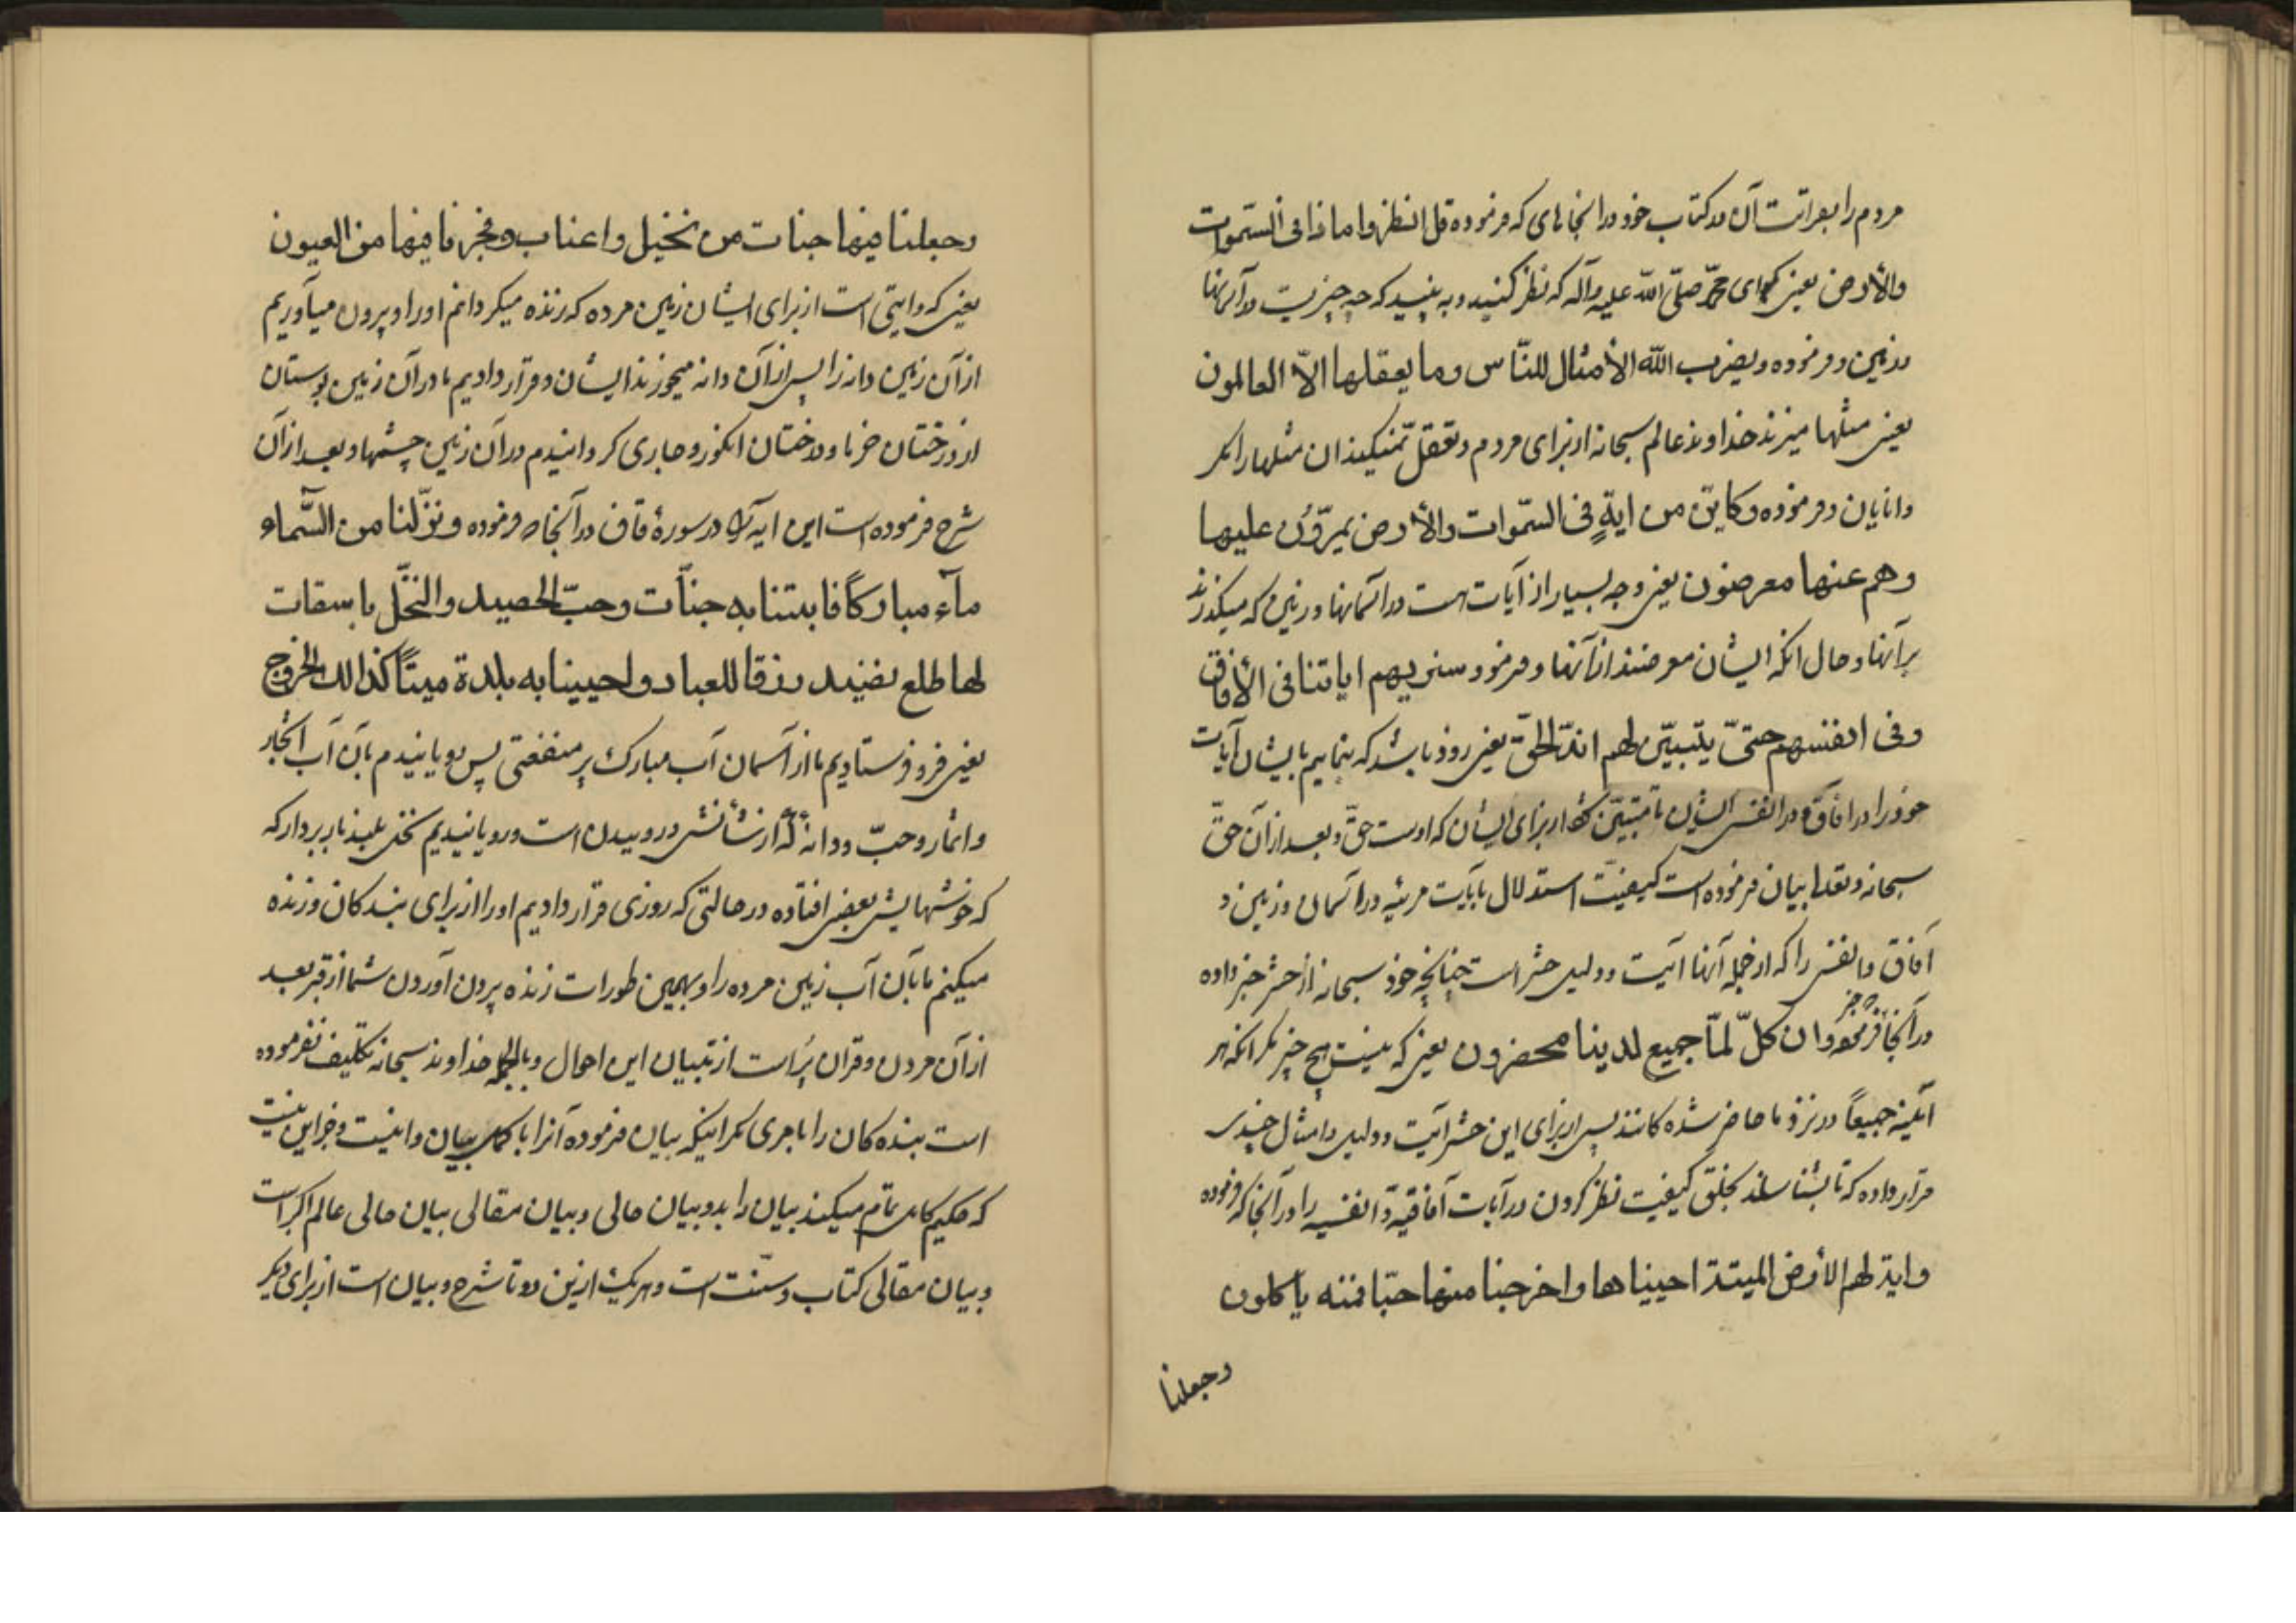 مردم را بقرائت آن در کتاب خود در انجاهای که فرموده قل انظروا ماذا فی السّموات
والأرض یعنی بگو ای محمّد صلّی اللّه علیه وآله که نظر کنید و به بینید که چه چیزیست در آسمانها
و زمین و فرموده و یضرب اللّه الأمثال للنّاس وما یعقلها الاّ العالمون
یعنی مثلها میزند خداوند عالم سبحانه از برای مردم و تعقّل نمیکنند ان مثلها را مگر
دانایان و فرموده وکایّن من ایةٍ فی السّموات والأرض یمرّون علیها
وهم عنها معرضون یعنی وچه بسیار از آیات هست در اسمانها و زمین که میگذرند
بر آنها و حال انکه ایشان معرضند از آنها و فرموده سنریهم ایاتنا فی الأفاق
وفی انفسهم حتیّ یتبیّن لهم انّه الحقّ یعنی زود باشد که بنماییم بایشان آیات
خود را در افاق و در انفس ایشان تا متبیّن شود از برای ایشان که اوست حقّ و بعد از آن حقّ
سبحانه و تعالی بیان فرموده است کیفیّت استدلال بآیات مرئیه در اسمان و زمین و
آفاق و انفس را که از جمله آنها آیت و دلیل حشر است چنانچه خود سبحانه از حشر خبر داده
در آنجا فرموده وان کلّ لمّا جمیع لدینا محضرون یعنی که نیست هیچ چیز مگر انکه هر
اینه جمیعاً در نزد ما حاضر شده کانند پس از برای این حشر آیت و دلیل و امثال چندی
قرار داده که تا بشناساند بخلق کیفیت نظر کردن در آیات آفاقیّه و انفسیه را در آنجا که فرموده
وایة لهم الأرض المیتة احییناها واخرجنا منها حبّا فمنه یاکلون
وجعلنا
وجعلنا فیها جنات من نخیل واعناب وفجرنا فیها من العیون
یعنی که و ایتی است از برای ایشان زمین مرده که زنده میکردانم او را و بیرون میآوریم
از آن زمین دانه را پس از آن دانه میخورند ایشان و قرار دادیم ما در آن زمین بوستان
از درختان خرما و درختان انکور و جاری کردانیدم در آن زمین چشمها و بعد از آن
شرح فرموده است این ایه را در سورهٔ قاف در آنجا که فرموده ونزّلنا من السّماء
مآء مبارکاً فانبتنا به جنّات وحبّ الحصید والنخّل باسقات
لها طلع نضید رزقا للعباد واحیینا به بلدة میتاً کذالک الخروج
یعنی فرو فرستادیم ما از آسمان آب مبارک پر منفعتی پس رویانیدم بآن آب اشجار
و اثمار وحبّ و دانه که از شأنش درویدن است و رویانیدیم نخل بلند بار بردار که
که خوشهایش بعضی افتاده در حالتی که روزی قرار دادیم او را از برای بندکان و زنده
میکنم ما بآن آب زمین مرده را و بهمین طور است زنده بیرون آوردن شما از قبر بعد
از آن مردن و قران پُر است از تبیان این احوال و بالجمله خداوند سبحانه تکلیف نفرموده
است بنده کان را بامری مگر اینکه بیان فرموده آنرا با کمل بیان و این نیست و جز این نیست
که حکیم کامل تمام میکند بیان را بدو بیان حالی و بیان مقالی بیان حالی عالم اکبر است
و بیان مقالی کتاب و سنّت است و هر یک از این دو تا شرح و بیان است از برای دیکر